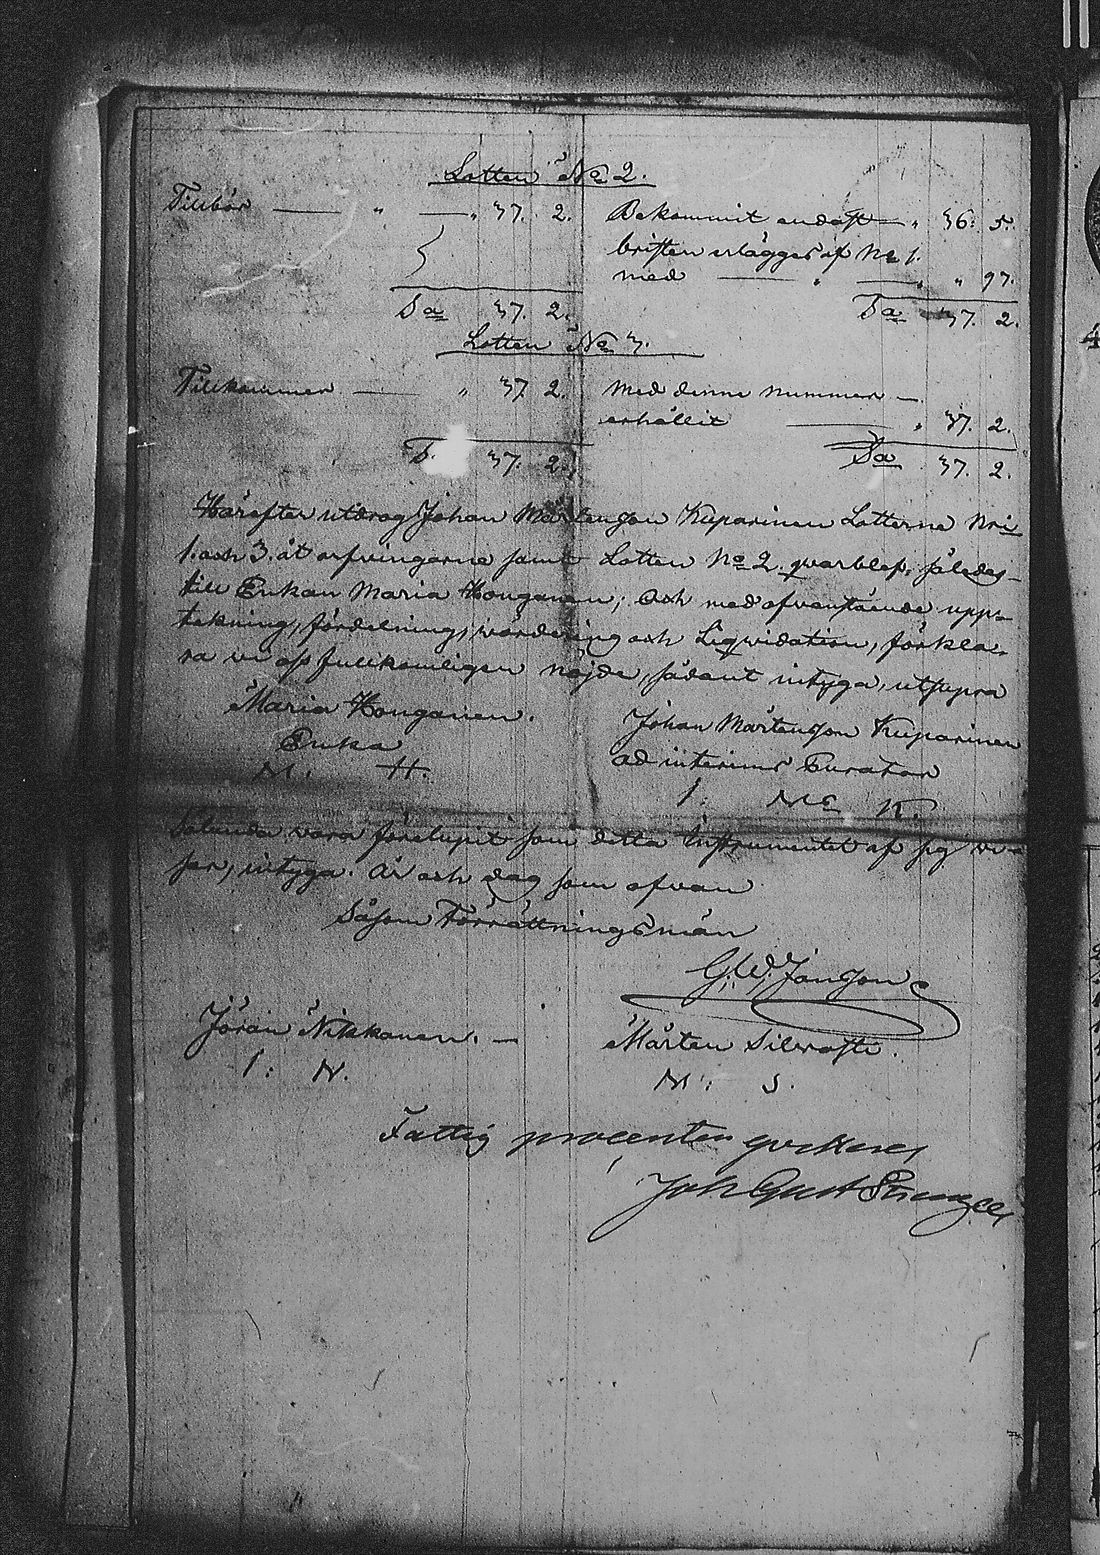 Lotten No 2.
Tillhör — " — " 37. 2. Bekommit endast — " 36. 5.
bristen erlägges af No 1.
med — " — " " 97.
Sa 37. 2. Sa 37. 2.
Lotten No 3.
Tillkommer — " 37 2. Med denne nummer —
erhållit — " 37. 2.
S. 37. 2. Sa 37. 2.
Härefter utdrog Johan Mårtensson Kuparinen Lotterne Nris
1. och 3. åt arfvingarne samt Lotten No 2. qvarblef, således
till Enkan Maria Honganen; Och med ofvanstående upp-
tekning, fördelning, värdering och Liqwidation, förkla-
ra vi oss fullkomligen nöjde, sådant intyga, utsupra
Maria Honganen. Johan Mårtensson Kuparinen
Enka ad interims Curator
M. H. I: ME K.
Salunda vara förelupit som detta Instrumentet af sig vi-
ser, intyga. År och dag som ofvan
Såsom Förrättningsmän
G: W: Jansson
Jöran Nikkanen. — Mårten Silvasti.
I: N. M: S.
Fattig procenten qvitteras
Joh Gust